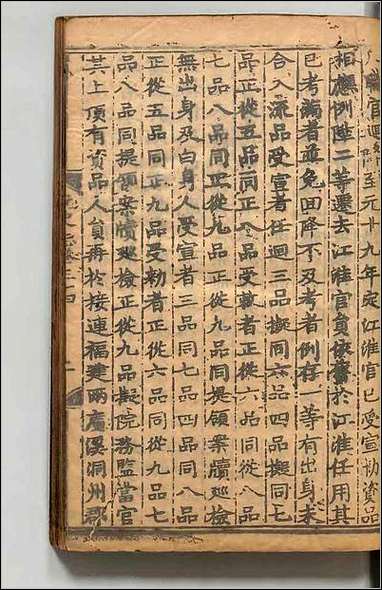 官迴至元十九年定江淮官已受宣勑資品
相應例陞二等遷去江淮官員依舊於江淮任用其
已考滿者並免回降不及考者例存一等有出身未
合入流品受宣者任迴三品擬同六品四品擬同七
品正從五品同正八品受勑者正從六品同從八品
七品八品同正從九品正從九品同提領案牘巡檢
無出身及白身人受宣者三品同七品四品同八品
正從五品同正九品受勑者正從六品同從九品七
品八品同提領案牘巡檢正從九品擬院務監當官
其上項有資品人員再於接連福建兩廣溪洞州郡